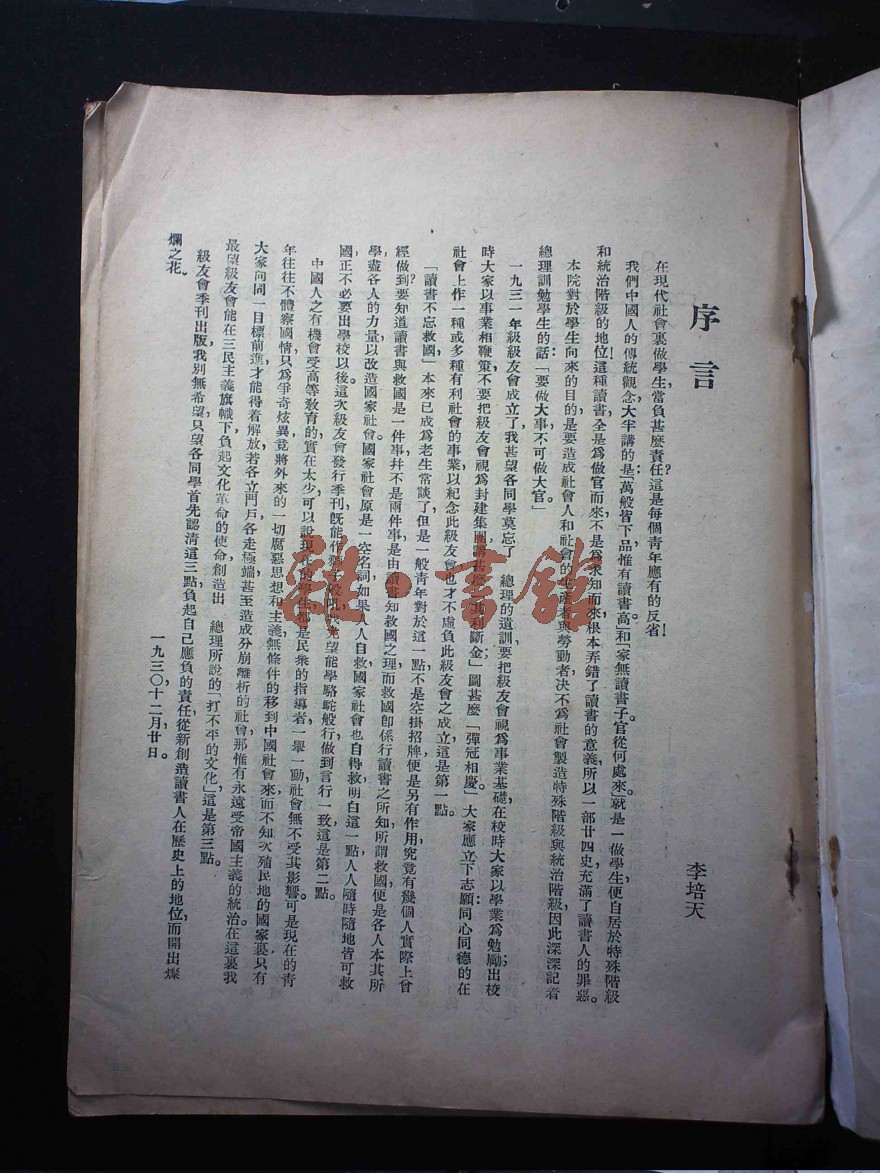 序言
李培天
在現代社會裏做學生當負甚麼責任?這是每個青年應有的反省!
我們中國人的傳統觀念大半講的是:「萬般皆下品惟有讀書高」和「家無讀書子官從何處來」就是一做學生便自居於特殊階級
和統治階級的地位!這種讀書全是爲做官而來不是爲求知而來根本弄錯了讀書的意義所以一部廿四史充滿了讀書人的罪惡。
本院對於學生向來的目的是要造成社會人和社會的生產者與勞動者决不爲社會製造特殊階級與統治階級因此深深記着
總理訓勉學生的話:「要做大事不可做大官」
一九三一年級級友會成立了,我甚望各同學莫忘了 總理的遺訓要把級友會視爲事業基礎在校時大家以學業爲勉勵出校
時大家以事業相鞭策不要把級友會視爲封建集團講 其利斷金」圖甚麼「彈冠相慶」大家應立下志願同心同德的在
社會上作一種或多種有利社會的事業以紀念此級友會也才不虛負此級友會之成立這是第一點。
「讀書不忘救國」本來已成爲老生常談了但是一般青年對於這一點不是空掛招牌便是另有作用究竟有幾個人實際上曾
經做到?要知道讀書與救國是一件事幷不是兩件事是由讀書知救國之理而救國卽係行讀書之所知所謂救國便是各人本其所
學盡各人的力量以改造國家社會。國家社會原是一空名詞如果人人自救國家社會也自得救明白這一點人人隨時隨地皆可救
國正不必要出學校以後這次級友會發行季刊旣能作獅子般吼 望能學駱駝般行做到言行一致這是第二點。
中國人之有機會受高等敎育的實在太少可以說現在的學生都是民衆的指導者一舉一動社會無不受其影響。可是現在的青
年往往不體察國情只爲爭奇炫異竟將外來的一切腐惡思想和主義無條件的移到中國社會來而不知次殖民地的國家裏只有
大家向同一目標前進才能得着解放若各立門戶各走極端甚至造成分崩離析的社會那惟有永遠受帝國主義的統治在這裏我
最望級友會能在三民主義旗幟下負起文化革命的使命創造出 總理所說的「打不平的文化」這是第三點。
級友會季刊出版,我別無希望只望各同學首先認清這三點負起自己應負的責任從新創造讀書人在歷史上的地位,而開出燦
爛之花。
一九三〇十二月廿日。
雜·書館